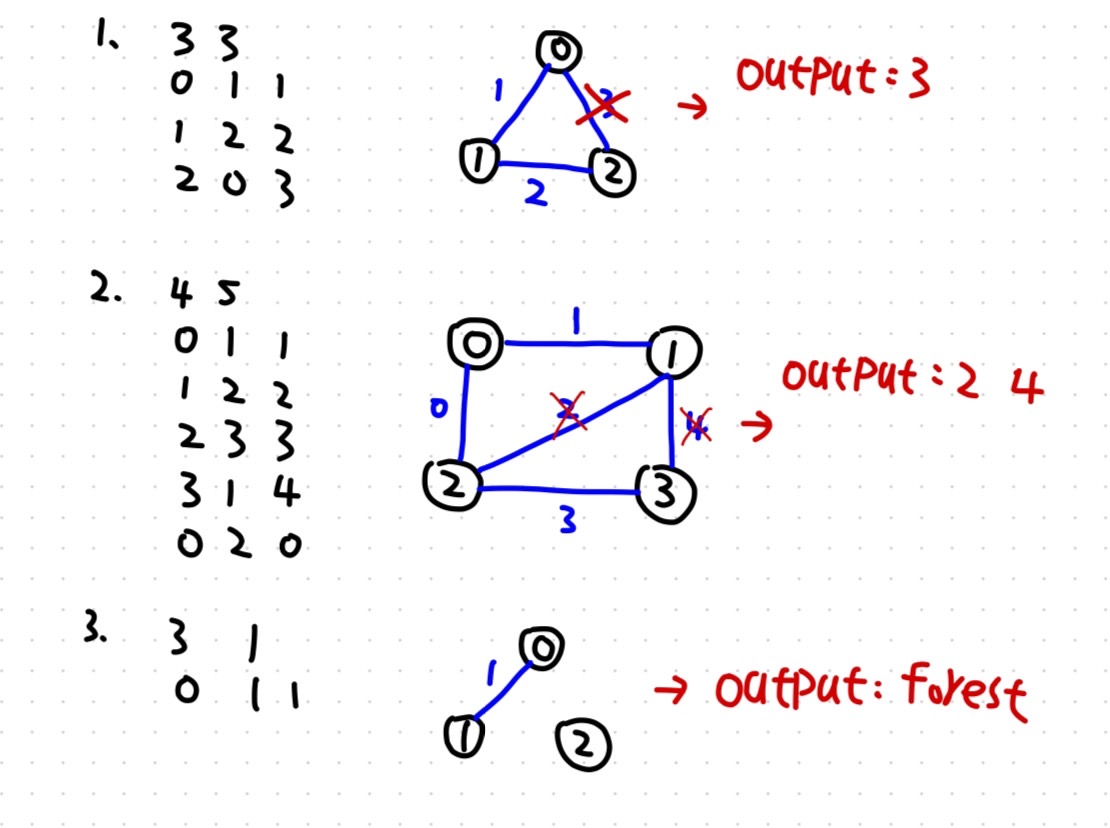 1. 3 3
0 1 1
1 2 2
2 0 3
0
1
3
1
2
2
→ output: 3
2. 4 5
0 1 1
1 2 2
2 3 3
3 1 4
0 2 0
1
0
1
0
2
4
2
3
3
→ output: 2 4
3. 3 1
0 1 1
0
1
1
2
→ output: forest